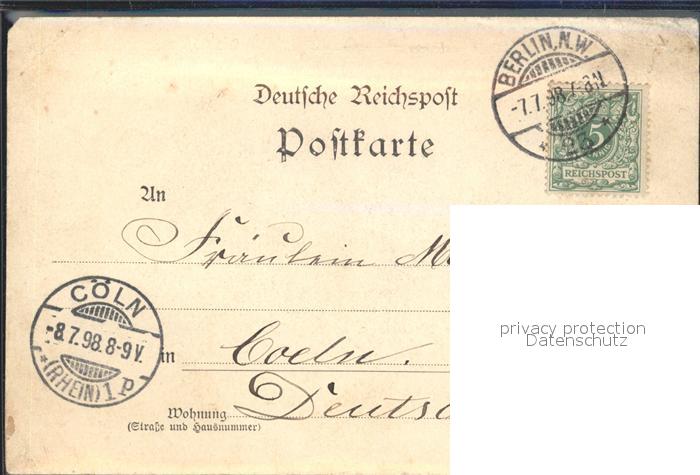 BERLIN, N.W.
-7.7.98.7-8N.
5
REICHSPOST
Deutsche Reichspost
Postkarte
An
Fräulein M
in Coeln.
Deutsc
Wohnung
(Straße und Hausnummer)
CÖLN
-8.7.98.8-9V.
*(RHEIN) 1 p
privacy protection
Datenschutz